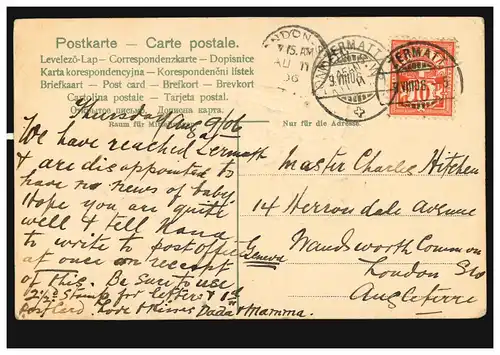 Postkarte - Carte postale.
Levelező-Lap - Correspondenzkarte - Dopisnice
Karta korespondencyjna - Korespondenční lístek
Briefkaart - Post card - Brefkort - Brevkort
Cartolina postale - Tarjeta postal.
Открытое письмо - Дописна карта.
Raum für
Nur für die Adresse.
Thursday Aug 9/06
We have reached Zermatt
& are disappointed to
have no news of baby.
Hope you are quite
well & tell Nana
to write to post office
Geneva
at once on receipt
of this. Be sure to use
2½d Stamp for letters & 1d
postcard. Love & kisses Dada & Mamma.
Master Charles Hitchen
14 Herrondale Avenue
Wandsworth Common
London SW
Angleterre
LONDON
7.15.AM
AU 11
06
ZERMATT
9 VIII 06
ZERMATT
9 VIII 06